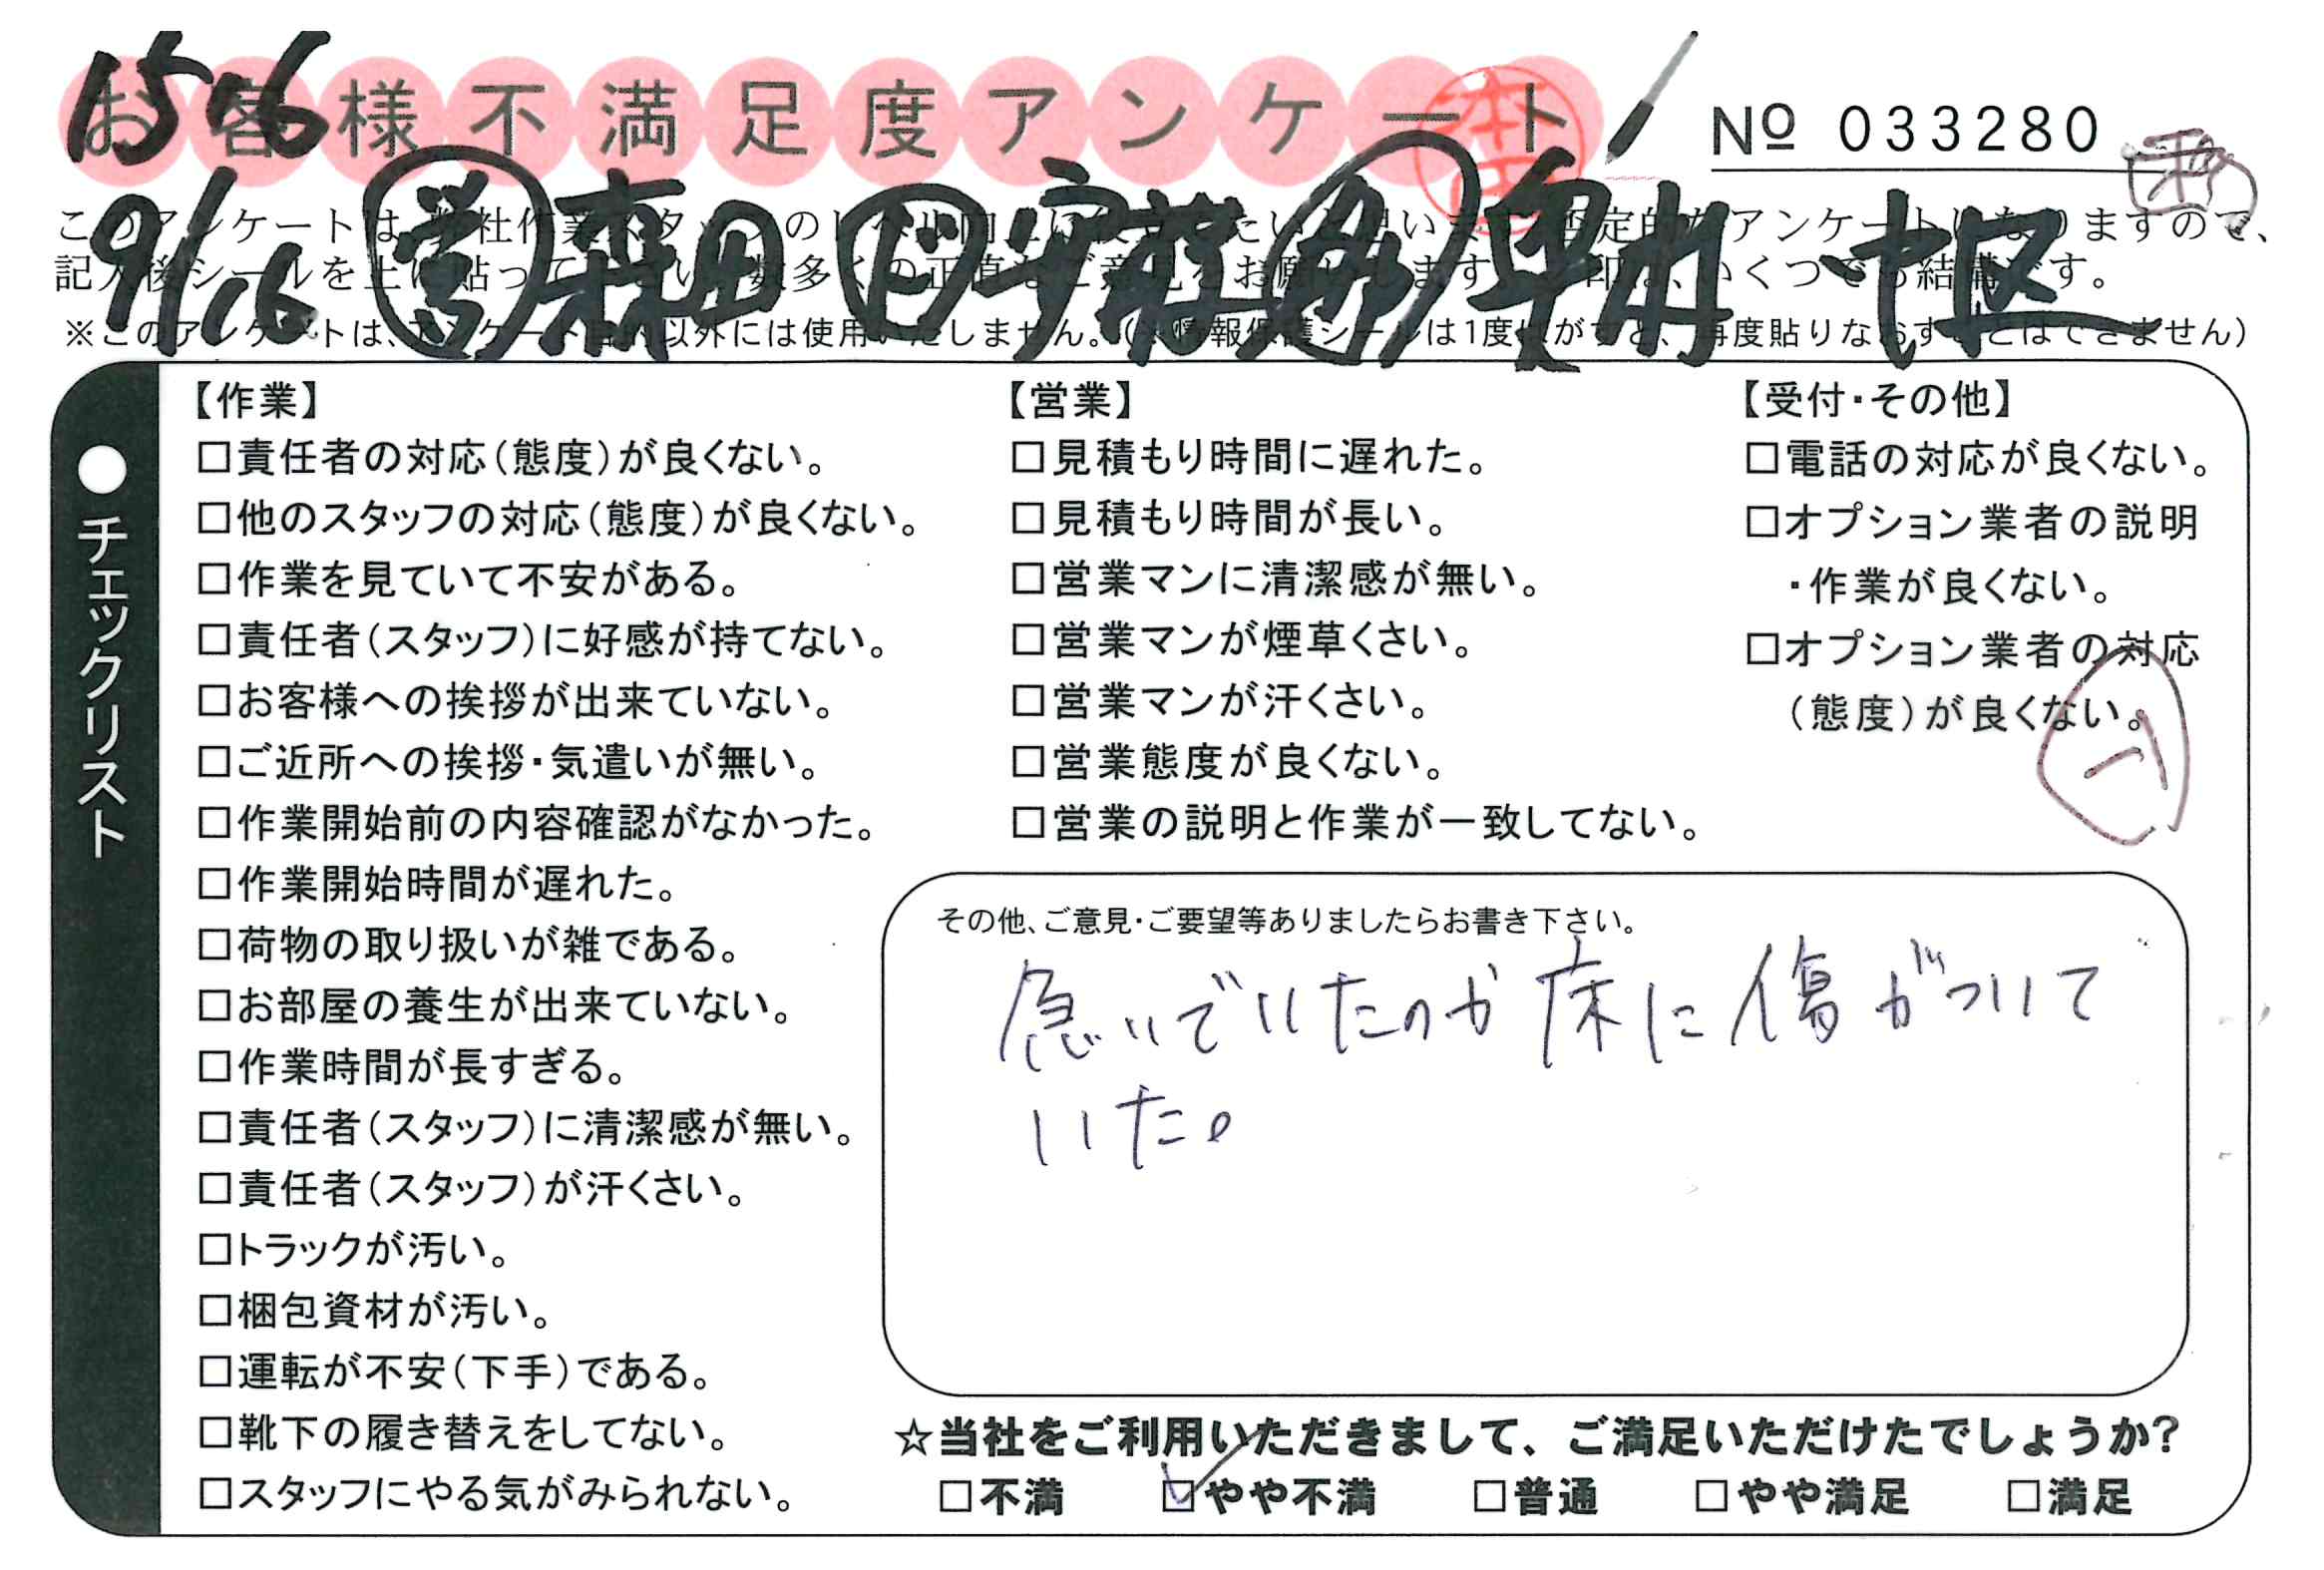 1576
お客様不満足度アンケート
№ 033280
9/16 営 森田 ド 中区
このアンケートは、弊社作業スタッフのレベル向上に役立てたいと思います。否定的なアンケートになりますので、
記入後シールを上に貼って下さい。数多くの正直なご意見をお願いします。✓印は、いくつでも結構です。
※このアンケートは、アンケート目的以外には使用いたしません。(※情報保護シールは1度はがすと、再度貼りなおすことはできません)
●チェックリスト
【作業】
□責任者の対応(態度)が良くない。
□他のスタッフの対応(態度)が良くない。
□作業を見ていて不安がある。
□責任者(スタッフ)に好感が持てない。
□お客様への挨拶が出来ていない。
□ご近所への挨拶・気遣いが無い。
□作業開始前の内容確認がなかった。
□作業開始時間が遅れた。
□荷物の取り扱いが雑である。
□お部屋の養生が出来ていない。
□作業時間が長すぎる。
□責任者(スタッフ)に清潔感が無い。
□責任者(スタッフ)が汗くさい。
□トラックが汚い。
□梱包資材が汚い。
□運転が不安(下手)である。
□靴下の履き替えをしてない。
□スタッフにやる気がみられない。
【営業】
□見積もり時間に遅れた。
□見積もり時間が長い。
□営業マンに清潔感が無い。
□営業マンが煙草くさい。
□営業マンが汗くさい。
□営業態度が良くない。
□営業の説明と作業が一致してない。
【受付・その他】
□電話の対応が良くない。
□オプション業者の説明
・作業が良くない。
□オプション業者の対応
(態度)が良くない。
その他、ご意見・ご要望等ありましたらお書き下さい。
急いでいたのか床に傷がついて
いた。
☆当社をご利用いただきまして、ご満足いただけたでしょうか?
□不満 ☑やや不満 □普通 □やや満足 □満足